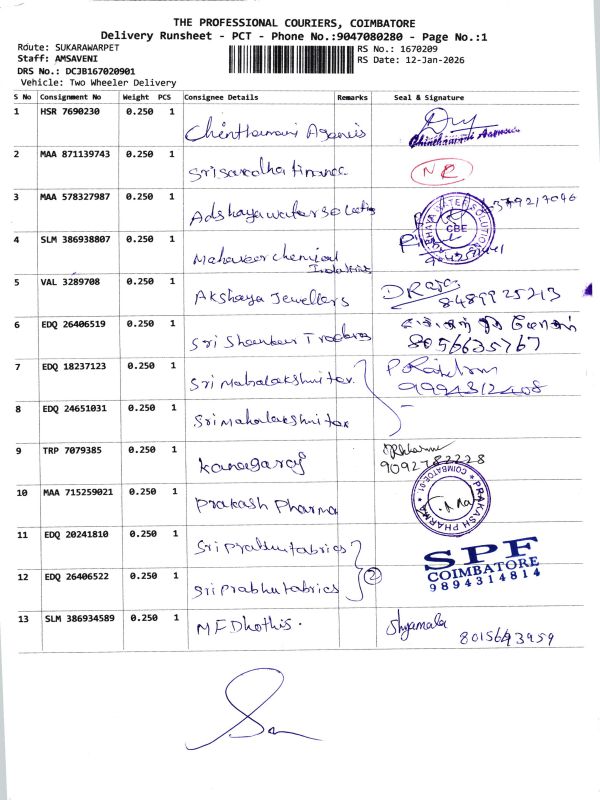 THE PROFESSIONAL COURIERS, COIMBATORE
Delivery Runsheet - PCT - Phone No.:9047080280 - Page No.:1
Route: SUKARAWARPET
RS No.: 1670209
Staff: AMSAVENI
RS Date: 12-Jan-2026
DRS No.: DCJB167020901
Vehicle: Two Wheeler Delivery
S No Consignment No Weight PCS Consignee Details Remarks Seal & Signature
1 HSR 7690230 0.250 1 Chinthamani Agencis Chinthamani Agencies
2 MAA 871139743 0.250 1 Sri Saradha finance NC
3 MAA 578327987 0.250 1 Adshaya water solutions WATER SOLUTIONS CBE
4 SLM 386938807 0.250 1 Mahaveer chemical
Industries
5 VAL 3289708 0.250 1 Akshaya Jewellers D Raja
8489925213
6 EDQ 26406519 0.250 1 Sri Shankar Traders
8056635767
7 EDQ 18237123 0.250 1 Sri Mahalakshmi tex
9994312408
8 EDQ 24651031 0.250 1 Sri Mahalakshmi tex
9 TRP 7079385 0.250 1 Kanagaraj
9092782228
10 MAA 715259021 0.250 1 Prakash Pharma PRAKASH PHARMA COIMBATORE-01.
11 EDQ 20241810 0.250 1 Sri prabhu fabrics
SPF
COIMBATORE
9894314814
12 EDQ 26406522 0.250 1 Sri prabhu fabrics 2
13 SLM 386934589 0.250 1 M F Dhothis. Shyamala
8015643959